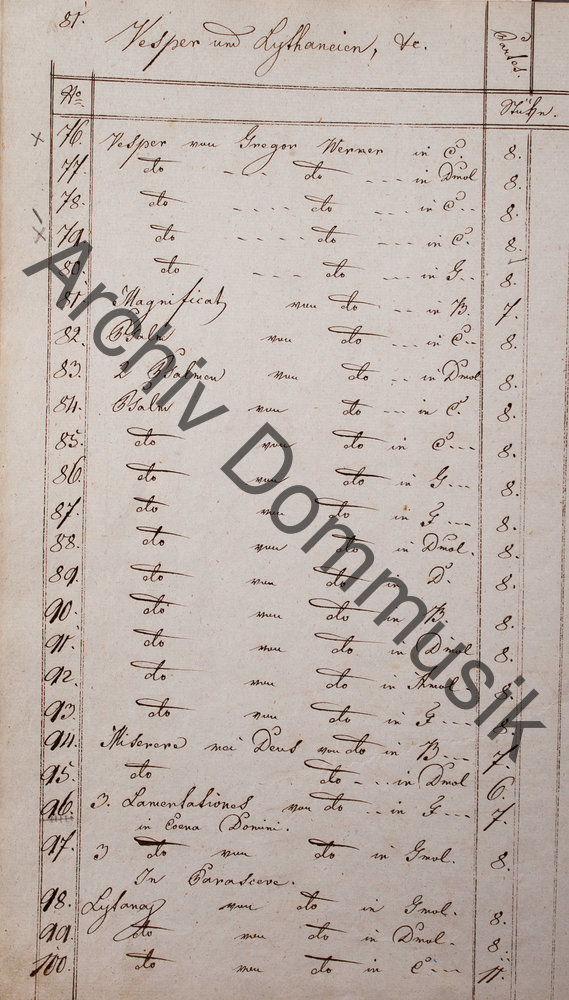 81.
Vesper und Lythaneien, &c.
Partes.
No
Stükn.
76. Vesper von Gregor Werner in C. 8.
77. do - - do - - - in Dmol 8.
78. do - - - - do - - - in C - - 8.
79. do - - - - do - - - in C. 8.
80. do - - - - do - - in G - - 8.
81. Magnificat von do - - in B. 7.
82. Psalm von do - - - in C - - 8.
83. 2 Psalmen von do - - in Dmol 8.
84. Psalm von do - - - in C. 8.
85. do von do in C - - - 8.
86. do von do in G - - - 8.
87. do von do in F - - - 8.
88. do von do in Dmol. 8.
89. do von do in D. 8.
90. do von do in B. 8.
91. do von do in Dmol 8.
92. do von do in Amol - 8.
93. do von do in F - - - 8.
94. Miserere mei Deus von do in B - - - 7.
95. do do - - - in Dmol 6.
96. 3. Lamentationes von do - - in F - - - 7.
in Coena Domini.
97. 3 do von do in Gmol. 8.
In Parasceve.
98. Lytanay von do in Gmol. 8.
99. do von do in Dmol - 8.
100. do von do in C - - - 11.
Archiv Dommusik